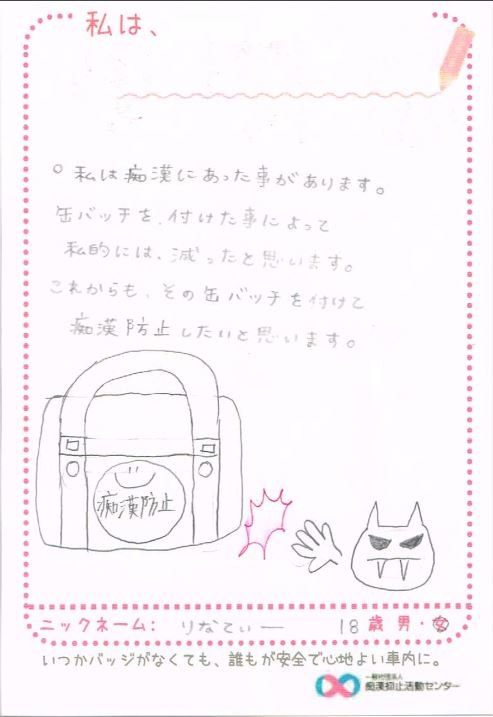 私は、
私は痴漢にあった事があります。
缶バッチを、付けた事によって
私的には、減ったと思います。
これからも、その缶バッチを付けて
痴漢防止したいと思います。
痴漢防止
ニックネーム: りなてぃー 18歳 男・女
いつかバッジがなくても、誰もが安全で心地よい車内に。
一般社団法人
痴漢抑止活動センター